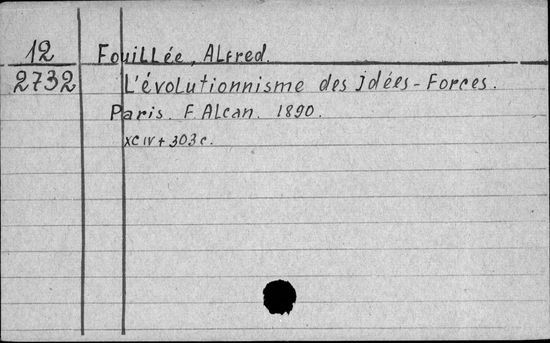 12
2732
Fouillée, Alfred.
L'évolutionnisme des idées-forces.
Paris. F. Alcan. 1890.
XCIV + 303 c.